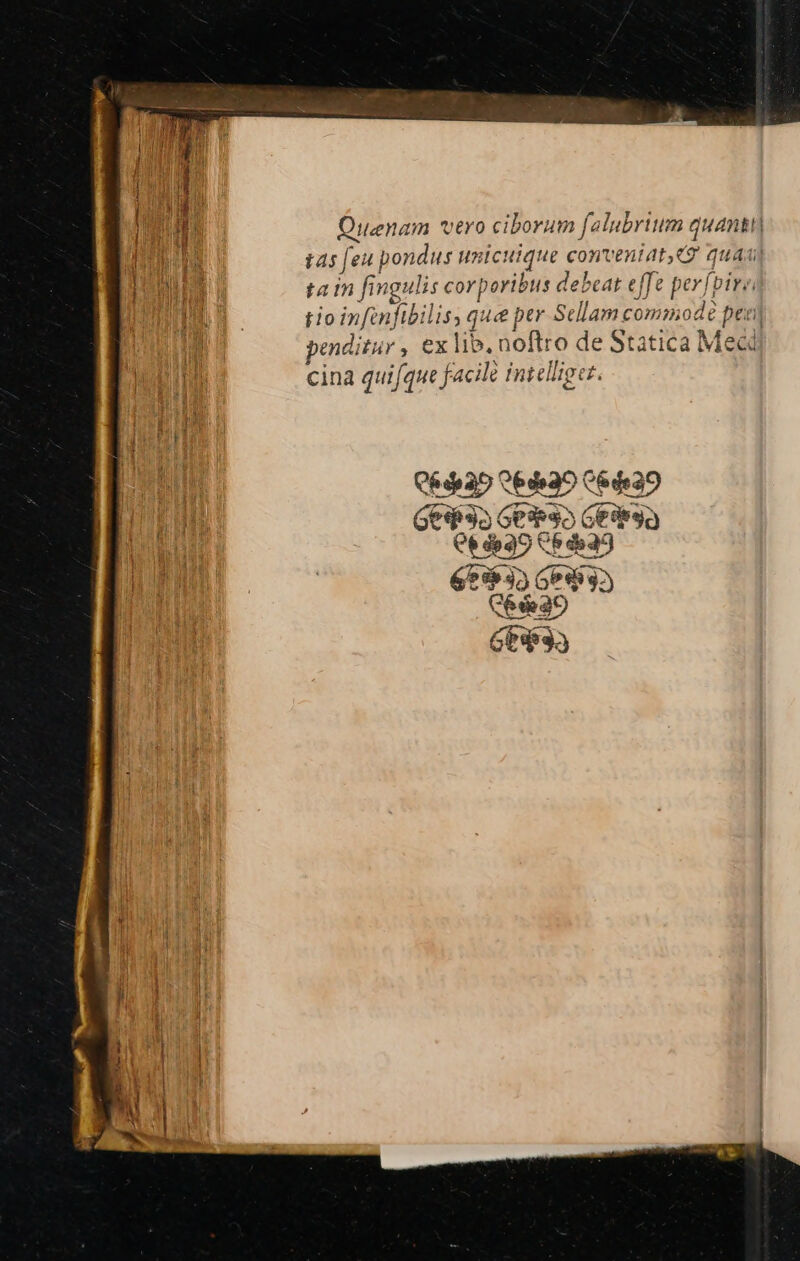 Quænam vero ciborum ſalubrium quanti
tas ſeu pondus unicuique conveniat, & quan
ta in ſingulis corporibus debeat eſſe perſpira
tio inſenſibilis, quæ per Sellam commodè per
penditur, ex lib. noſtro de Statica Medi
cina quiſque facilè intelliget.